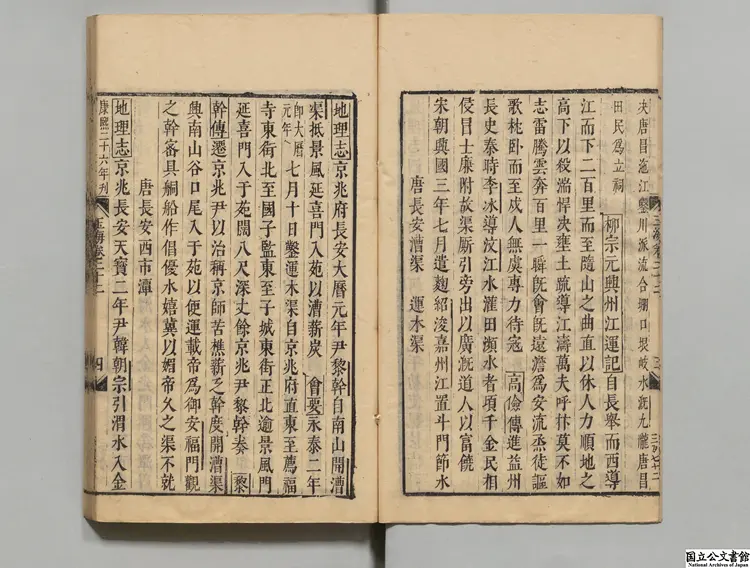 决唐昌沲江鑿川派流合堋口堰岐水漑九隴唐昌
田民爲立祠
柳宗元興州江運記自長舉而西導
江而下二百里而至隨山之曲直以休人力順地之
高下以殺湍悍决壅土疏導江濤萬夫呼抃莫不如
志雷騰雲奔百里一瞬旣會旣遠澹爲安流烝徒謳
歌枕卧而至戍人無虞專力待寇
高儉傳進益州
長史秦時李冰導汶江水灌田瀕水者頃千金民相
侵冒士廉附故渠厮引旁出以廣漑道人以富饒
宋朝興國三年七月遣麹紹浚嘉州江置斗門節水
唐長安漕渠 運木渠
地理志京兆府長安大曆元年尹黎幹自南山開漕
渠抵景風延喜門入苑以漕薪炭
會要永泰二年
即大曆
元年
七月十日鑿運木渠自京兆府直東至薦福
寺東街北至國子監東至子城東街正北逾景風門
延喜門入于苑闊八尺深丈餘京兆尹黎幹奏
黎
幹傳遷京兆尹以治稱京師苦樵薪乏幹度開漕渠
興南山谷口尾入于苑以便運載帝爲御安福門觀
之幹密具舸船作倡優水嬉冀以媚帝久之渠不就
唐長安西市潭
地理志京兆長安天寶二年尹韓朝宗引渭水入金
康熙二十六年刋
玉海卷二十二
四
国立公文書館
National Archives of Japan